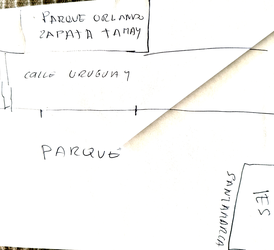 PARQUE ORLANDO
ZAPATA TAMAY
CALLE URUGUAY
PARQUE
IES